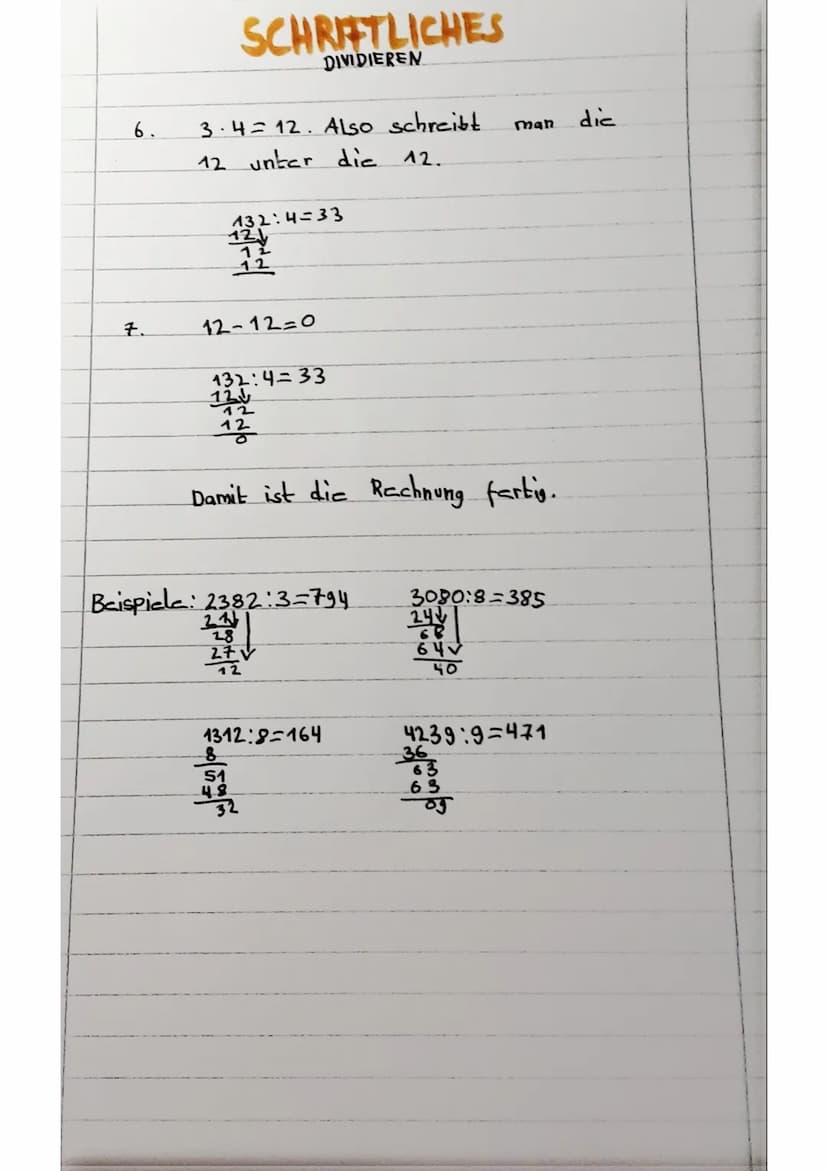 SCHRIFTLICHES
DIVIDIEREN
6. 3·4=12. Also schreibt man die
12 unter die 12.
132:4=33
12↓
12
12
7. 12-12=0
132:4=33
12↓
12
12
0
Damit ist die Rechnung fertig.
Beispiele: 2382:3=794
21↓
28
27↓
12
3080:8=385
24↓
68
64↓
40
1312:8=164
8
51
48
32
4239:9=471
36
63
63
09